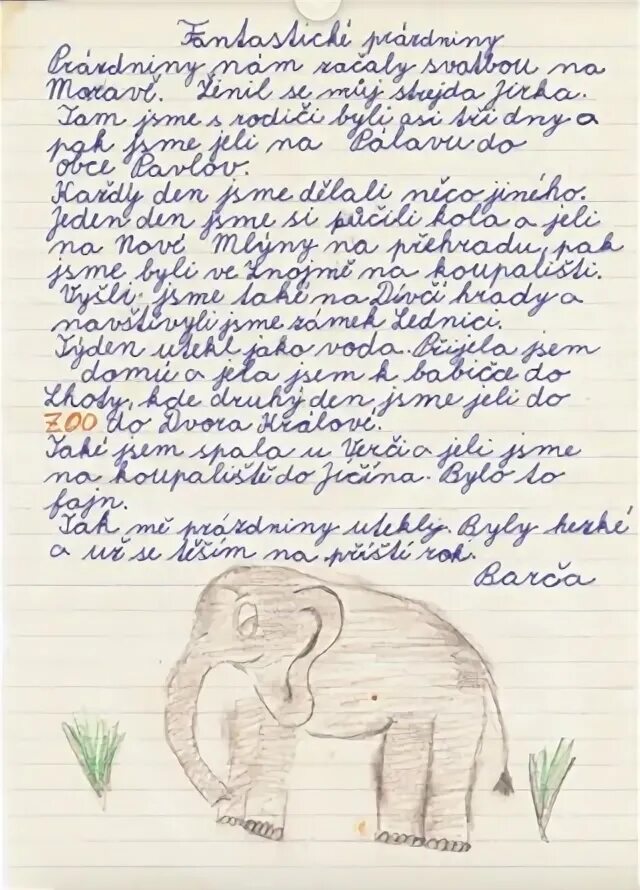 Fantastické prázdniny
Prázdniny nám začaly svatbou na
Moravě. Ženil se můj strejda Jirka.
Tam jsme s rodiči byli asi tři dny a
pak jsme jeli na Pálavu do
obce Pavlov.
Každý den jsme dělali něco jiného.
Jeden den jsme si půčili kola a jeli
na Nové Mlýny na přehradu, pak
jsme byli ve Znojmě na koupališti.
Vyšli jsme také na Dívčí hrady a
navštívyli jsme zámek Lednici.
Týden utekl jako voda. Přijela jsem
domů a jela jsem k babičce do
Lhoty, kde druhý den jsme jeli do
ZOO do Dvora Králové.
Také jsem spala u Verči a jeli jsme
na koupaliště do Jičína. Bylo to
fajn.
Tak mě prázdniny utekly. Byly hezké
a už se těším na příští rok.
Barča